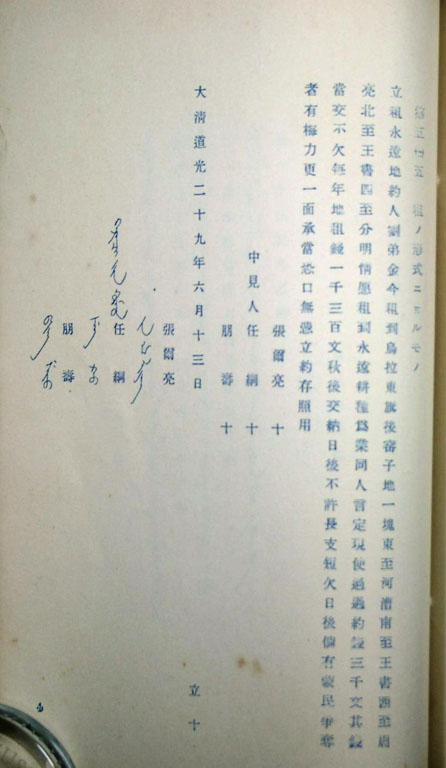 第五十五 租ノ形式ニヨルモノ
立租永遠地約人劉弟金今租到烏拉東旗後審子地一塊東至河漕南至王書西至唐
亮北至王書四至分明情愿租到永遠耕種爲業同人言定現使過過約錢三千文其錢
當交不欠每年地租錢一千三百文秋後交納日後不許長支短欠日後倘有蒙民爭奪
者有梅力更一面承當恐口無憑立約存照用
張爾亮 十
中見人 任綱 十
朋壽 十
大清道光二十九年六月十三日 立十
張爾亮
任綱
朋壽